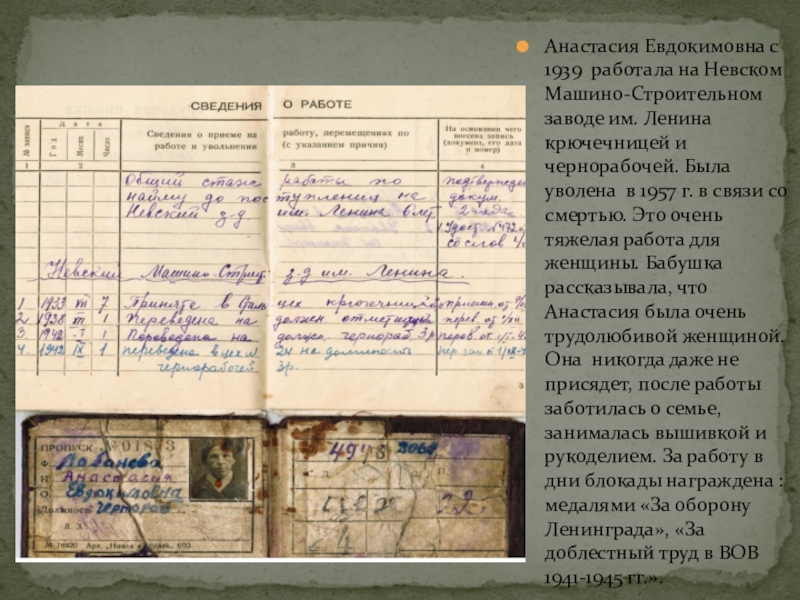 Анастасия Евдокимовна с
1939 работала на Невском
Машино-Строительном
заводе им. Ленина
крючечницей и
чернорабочей. Была
уволена в 1957 г. в связи со
смертью. Это очень
тяжелая работа для
женщины. Бабушка
рассказывала, что
Анастасия была очень
трудолюбивой женщиной.
Она никогда даже не
присядет, после работы
заботилась о семье,
занималась вышивкой и
рукоделием. За работу в
дни блокады награждена :
медалями «За оборону
Ленинграда», «За
доблестный труд в ВОВ
1941-1945 гг.».
СВЕДЕНИЯ О РАБОТЕ
№ записи
Дата
Год
Месяц
Число
Сведения о приеме на работу, перемещениях по
работе и увольнении (с указанием причин)
На основании чего
внесена запись
(документ, его дата
и номер)
1 2 3 4
Общий стаж работы по
найму до поступления на
Невский з-д. им. Ленина 6 лет
Невский Машино-Строит. з-д им. Ленина.
1 1933 VII 7 Принята в цех
2 1938 III 1 Переведена на должн.
3. 1942 I 1 Переведена на должн. чернораб. 3 р.
4. 1942 IX 1 переведена в цех № 24 на должность
чернорабочей 3 р.
3
ПРОПУСК № 01873
Ф. Лобанова
И. Анастасия
О. Евдокимовна
Должность Чернораб